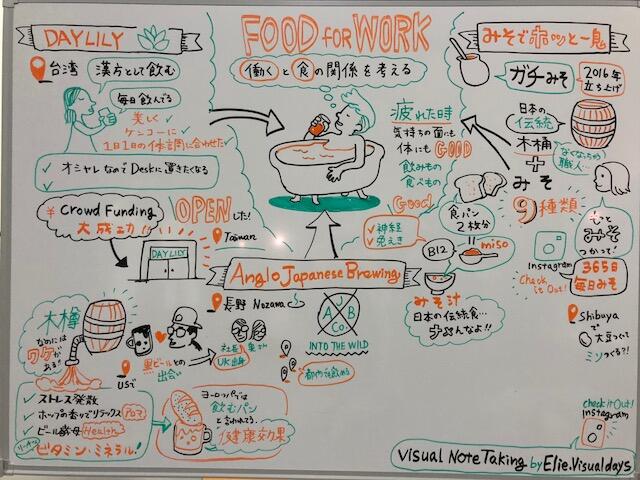 DAYLILY
台湾
漢方として飲む
毎日飲んでる
✓美しく
✓ケンコーに
✓1日1日の体調に合わせた
✓オシャレなのでDeskに置きたくなる
✓
¥ Crowd Funding
大成功!
OPENした!
Taiwan
DAYLILY
FOOD FOR WORK
働くと食の関係を考える
疲れた時
気持ちの面にも
体にもGOOD
飲みもの
食べもの
Good
✓神経
✓免えき
食パン
2枚分
B12
miso
みそ汁
日本の伝統食…
みそでホッと一息
ガチみそ
2016年
立ち上げ
日本の
伝統
木桶
+
みそ
9種類
なくなっちゃう
職人…
もっと
みそ
つかって!
Instagram
Check
it Out!
365日
毎日みそ
Shibuya
で
大豆つくて
ミソつくる?!
Anglo Japanese Brewing
長野 Nozawa
A J B Co.
INTO THE WILD
都内でも飲める
木樽
なめには
ワケが
ある!!
USで
黒ビールとの
出会い
UK出身
✓ストレス発散
✓ホップの香りでリラックス
✓ビール酵母 Health
ビタミン・ミネラル!
ヨーロッパでは
飲むパン
と言われてる。
健康効果
check it Out!
Instagram
Visual Note Taking by Elie.Visualdays